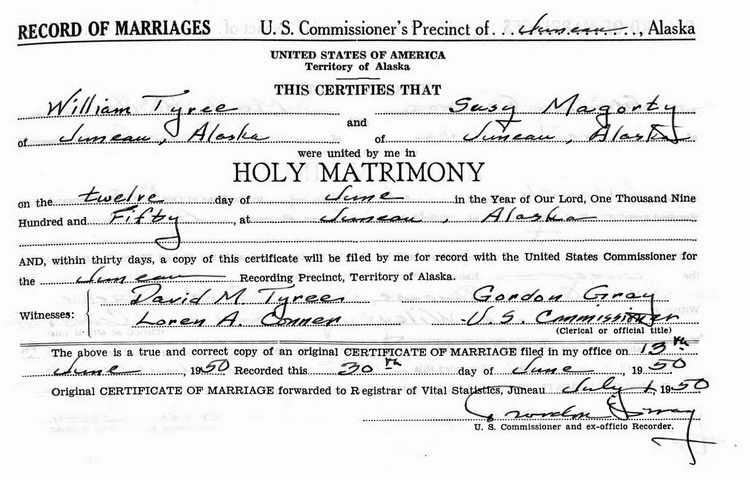 RECORD OF MARRIAGES U. S. Commissioner's Precinct of ...Juneau..., Alaska
UNITED STATES OF AMERICA
Territory of Alaska
THIS CERTIFIES THAT
William Tyree and Susy Magorty
of Juneau, Alaska of Juneau, Alaska
were united by me in
HOLY MATRIMONY
on the twelve day of June in the Year of Our Lord, One Thousand Nine
Hundred and Fifty, at Juneau, Alaska
AND, within thirty days, a copy of this certificate will be filed by me for record with the United States Commissioner for
the Juneau Recording Precinct, Territory of Alaska.
Witnesses: David M. Tyree Gordon Gray
Loren A. Conner U.S. Commissioner
(Clerical or official title)
The above is a true and correct copy of an original CERTIFICATE OF MARRIAGE filed in my office on 13th
June, 1950 Recorded this 30th day of June, 1950
Original CERTIFICATE OF MARRIAGE forwarded to Registrar of Vital Statistics, Juneau July 1, 1950
Gordon Gray
U. S. Commissioner and ex-officio Recorder.